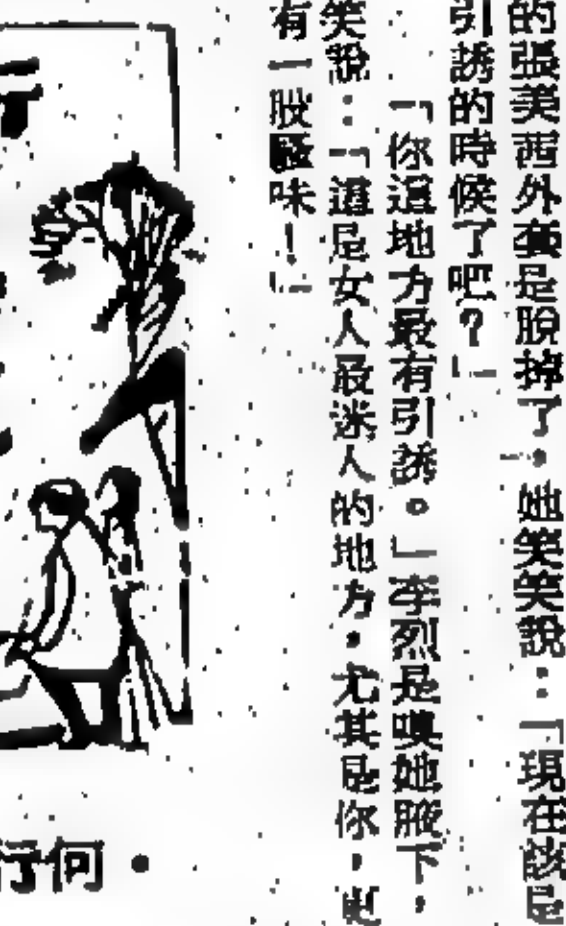 的張美西外套是脫掉了，她笑笑說：「現在該是
引誘的時候了吧？」
「你這地方最有引誘。」李烈是嗅她腋下，
笑說：「這是女人最迷人的地方，尤其是你，更
有一股騷味！」
行
行何•